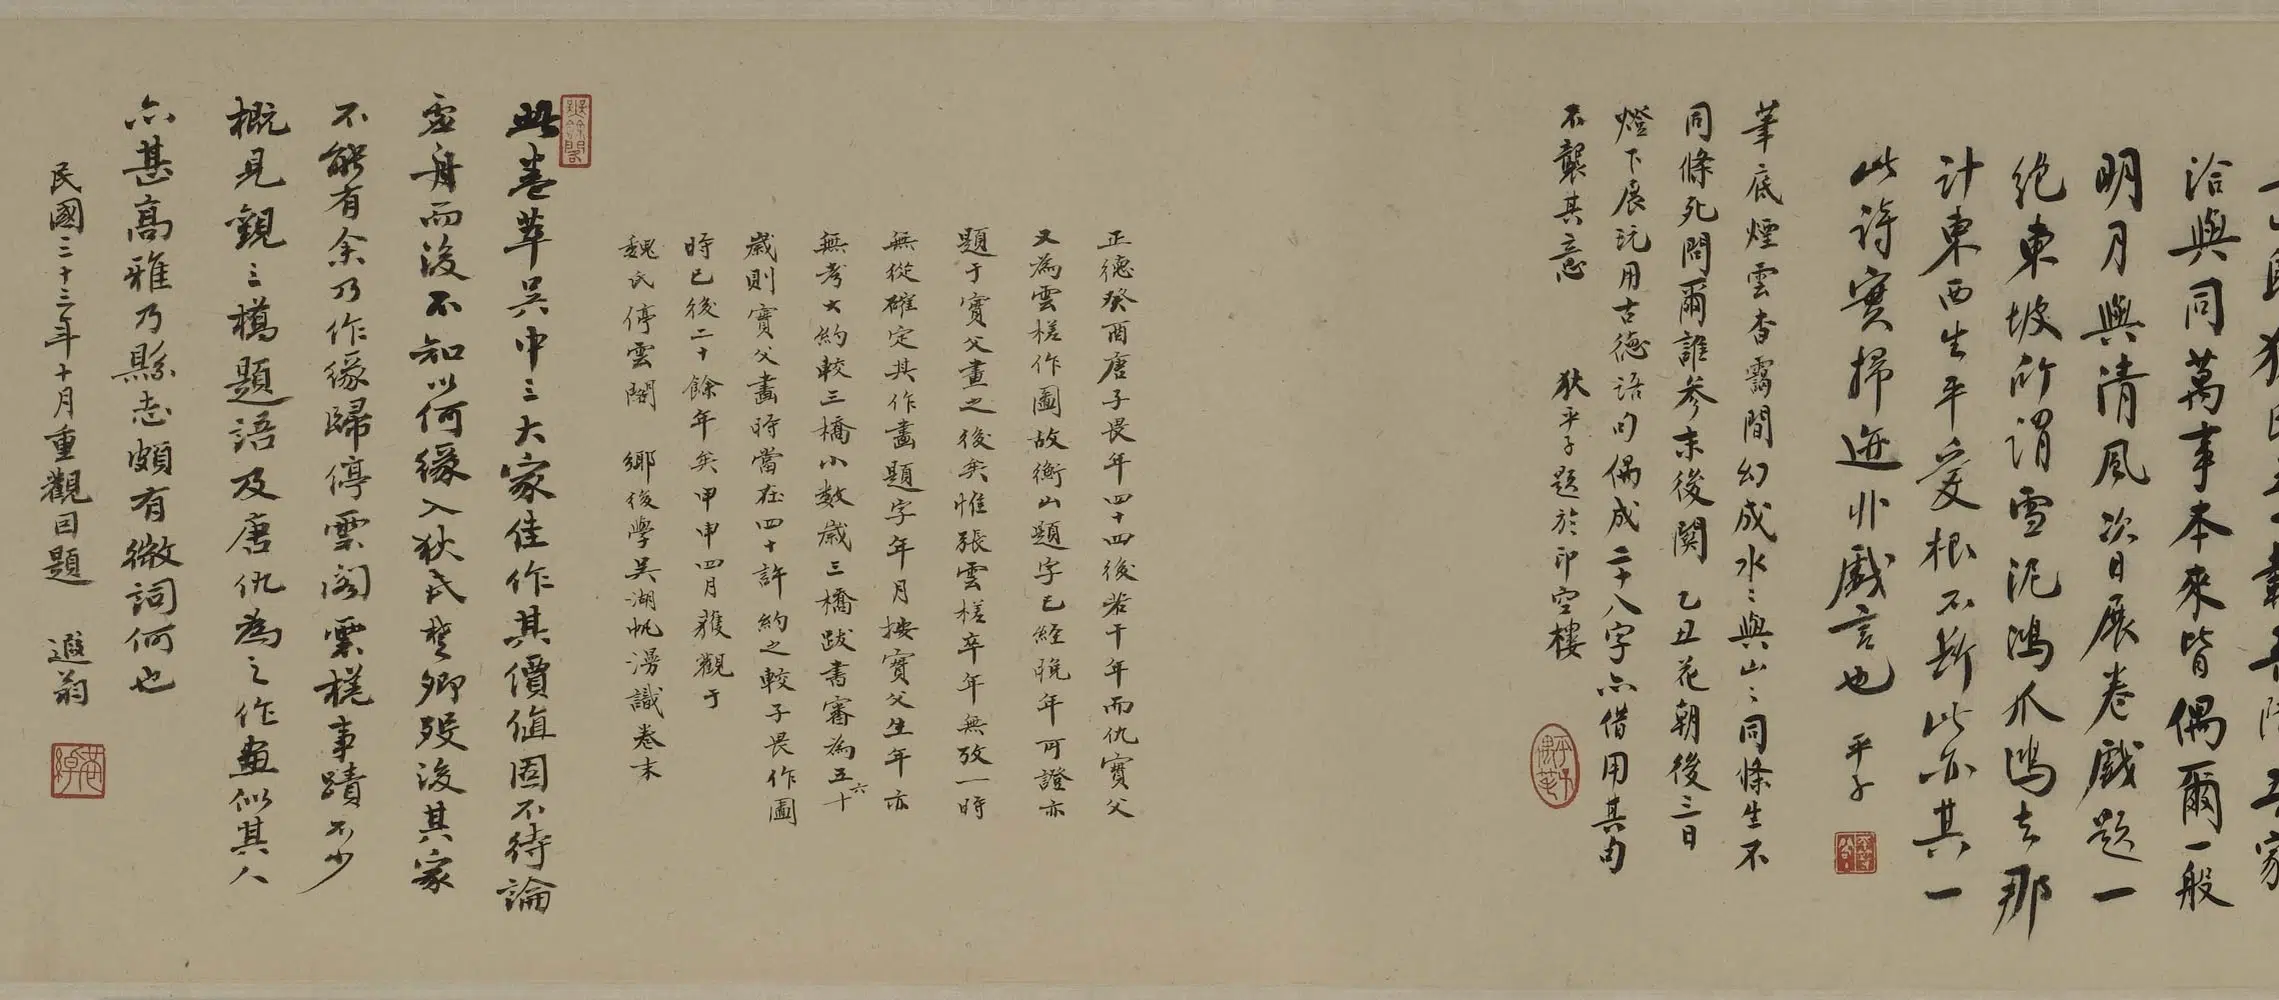 洽與同萬事本來皆偶爾一般
明月與清風次日展卷戲題一
絕東坡所謂雪泥鴻爪鴻去那
計東西生平愛根不斷此亦其一
此詩實掃迹非戲言也 平子
筆底煙雲杳靄間幻成水〻與山〻同條生不
同條死問爾誰參末後關 乙丑花朝後三日
燈下展玩用古德語句偶成二十八字亦借用其句
不襲其意 狄平子題於印空樓
正德癸酉唐子畏年四十四後若干年而仇實父
又為雲槎作圖故衡山題字已經晚年可證亦
題于實父畫之後矣惟張雲槎卒年無攷一時
無從確定其作畫題字年月按實父生年亦
無考大約較三橋小數歲三橋跋書審為五六十
歲則實父畫時當在四十許約之較子畏作圖
時已後二十餘年矣甲申四月獲觀于
魏氏停雲閣 鄉後學吳湖帆湯識卷末
此卷萃吳中三大家佳作其價值固不待論
虛舟而後不知以何緣入狄氏楚卿歿後其家
不能有余乃作緣歸停雲閣雲槎事蹟不少
概見觀三橋題語及唐仇為之作畫似其人
亦甚高雅乃縣志頗有微詞何也
民國三十三年十月重觀因題 遐翁